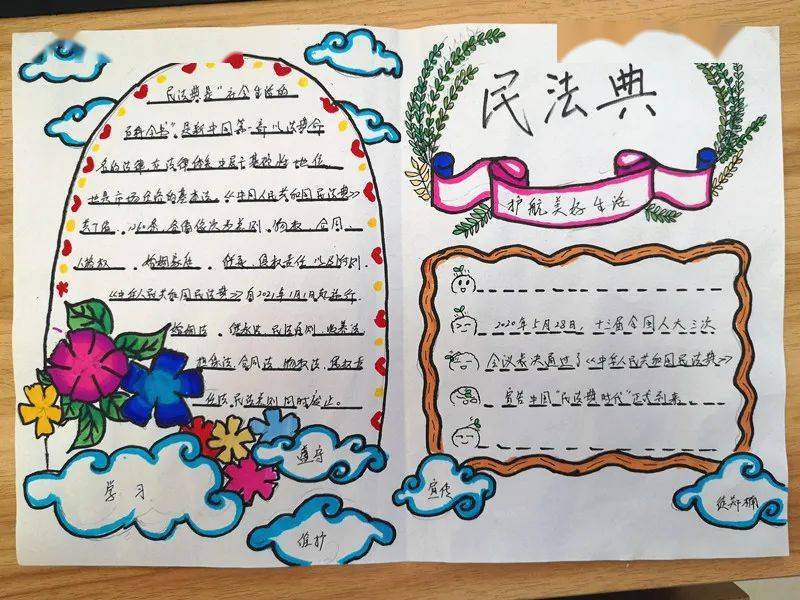 民法典
护航美好生活
民法典是"社会生活的
百科全书"，是新中国第一部以法典命
名的法律，在法律体系中居于基础性地位，
也是市场经济的基本法。《中华人民共和国民法典》
共7编、1260条，各编依次为总则、物权、合同、
人格权、婚姻家庭、继承、侵权责任，以及附则。
《中华人民共和国民法典》自2021年1月1日起施行
婚姻法、继承法、民法通则、收养法、
担保法、合同法、物权法、侵权责
任法、民法总则同时废止。
2020年5月28日，十三届全国人大三次
会议表决通过了《中华人民共和国民法典》
宣告中国"民法典时代"正式到来
学习
遵守
维护
宣传